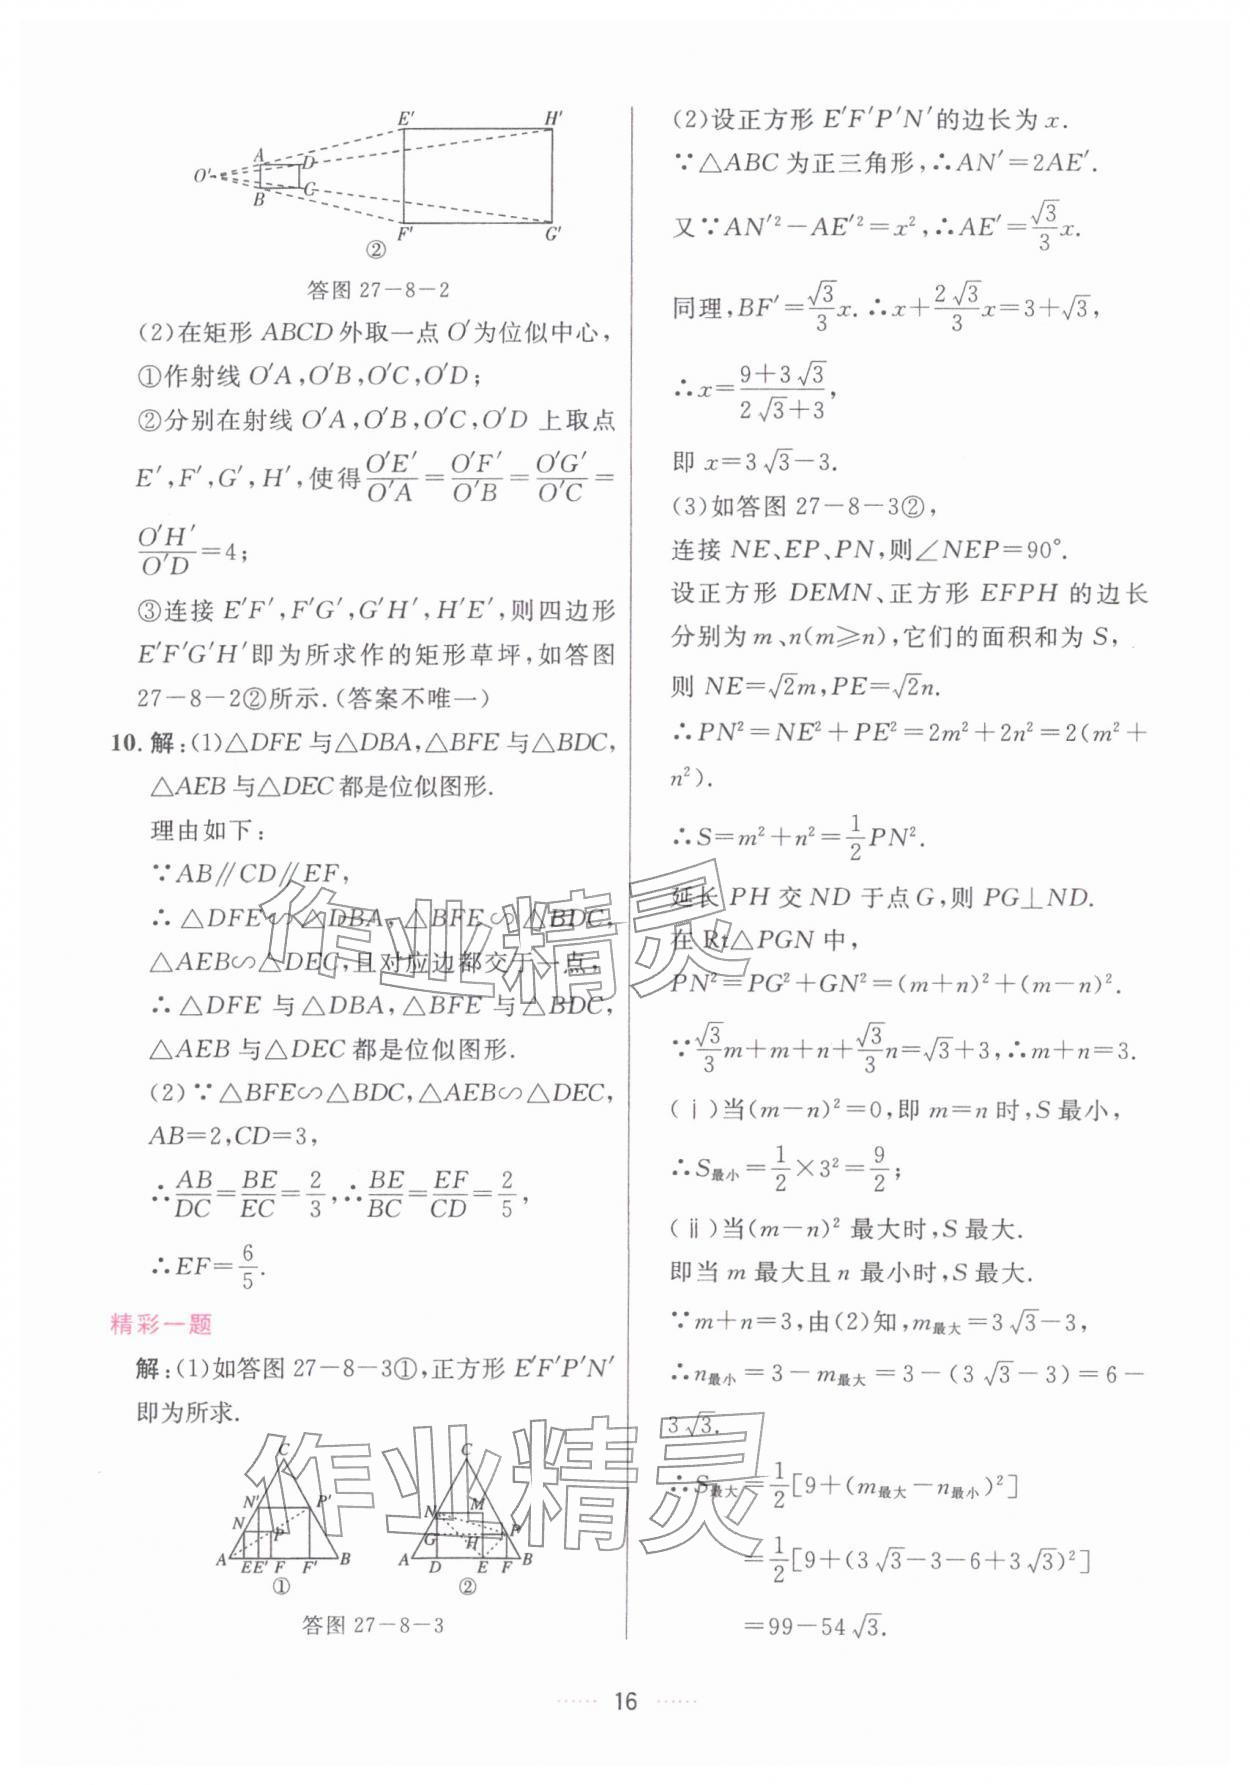 E′ H′
A D
O′
B C
F′ G′
②
答图 27-8-2
(2)在矩形 ABCD 外取一点 O′为位似中心,
①作射线 O′A,O′B,O′C,O′D;
②分别在射线 O′A,O′B,O′C,O′D 上取点
E′,F′,G′,H′,使得O′E′/O′A=O′F′/O′B=O′G′/O′C=
O′H′/O′D=4;
③连接 E′F′,F′G′,G′H′,H′E′,则四边形
E′F′G′H′即为所求作的矩形草坪,如答图
27-8-2②所示.(答案不唯一)
10. 解:(1)△DFE 与△DBA,△BFE 与△BDC,
△AEB 与△DEC 都是位似图形.
理由如下:
∵AB∥CD∥EF,
∴△DFE∽△DBA,△BFE∽△BDC,
△AEB∽△DEC,且对应边都交于一点,
∴△DFE 与△DBA,△BFE 与△BDC,
△AEB 与△DEC 都是位似图形.
(2)∵△BFE∽△BDC,△AEB∽△DEC,
AB=2,CD=3,
∴AB/DC=BE/EC=2/3,∴BE/BC=EF/CD=2/5,
∴EF=6/5.
精彩一题
解:(1)如答图 27-8-3①,正方形 E′F′P′N′
即为所求.
C
N′ P′
N P
A E E′ F F′ B
①
C
N M
G H P
A D E F B
②
答图 27-8-3
(2)设正方形 E′F′P′N′的边长为 x.
∵△ABC 为正三角形,∴AN′=2AE′.
又∵AN′²-AE′²=x²,∴AE′=√3/3x.
同理,BF′=√3/3x.∴x+2√3/3x=3+√3,
∴x=9+3√3/2√3+3,
即 x=3√3-3.
(3)如答图 27-8-3②,
连接 NE、EP、PN,则∠NEP=90°.
设正方形 DEMN、正方形 EFPH 的边长
分别为 m、n(m≥n),它们的面积和为 S,
则 NE=√2m,PE=√2n.
∴PN²=NE²+PE²=2m²+2n²=2(m²+
n²).
∴S=m²+n²=1/2PN².
延长 PH 交 ND 于点 G,则 PG⊥ND.
在 Rt△PGN 中,
PN²=PG²+GN²=(m+n)²+(m-n)².
∵√3/3m+m+n+√3/3n=√3+3,∴m+n=3.
(ⅰ)当(m-n)²=0,即 m=n 时,S 最小,
∴S最小=1/2×3²=9/2;
(ⅱ)当(m-n)² 最大时,S 最大.
即当 m 最大且 n 最小时,S 最大.
∵m+n=3,由(2)知,m最大=3√3-3,
∴n最小=3-m最大=3-(3√3-3)=6-
3√3.
∴S最大=1/2[9+(m最大-n最小)²]
=1/2[9+(3√3-3-6+3√3)²]
=99-54√3.
作业精灵
作业精灵
16